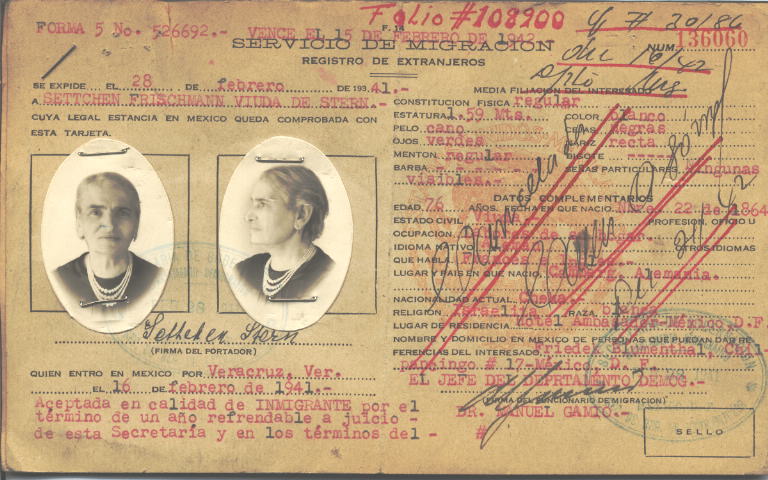 Folio #108900
FORMA 5 No. 526692.- VENCE EL 15 DE FEBRERO DE 1942.-
F. 14
SERVICIO DE MIGRACION
NUM. 136060
REGISTRO DE EXTRANJEROS
SE EXPIDE EL 28 DE febrero DE 1941.-
A SETTCHEN FRISCHMANN VIUDA DE STERN.-
CUYA LEGAL ESTANCIA EN MEXICO QUEDA COMPROBADA CON
ESTA TARJETA.
Settchen Stern
(FIRMA DEL PORTADOR)
QUIEN ENTRO EN MEXICO POR Veracruz, Ver.
EL 16 de febrero de 1941.-
Aceptada en calidad de INMIGRANTE por el
término de un año refrendable a juicio -
de esta Secretaría y en los términos del -
MEDIA FILIACION DEL INTERESADO
CONSTITUCION FISICA regular
ESTATURA 1.59 Mts. COLOR blanco
PELO cano CEJAS negras
OJOS verdes NARIZ recta
MENTON regular BIGOTE -----
BARBA - - - - - SEÑAS PARTICULARES ningunas
visibles.-
DATOS COMPLEMENTARIOS
EDAD 76 AÑOS. FECHA EN QUE NACIO, 22 de 1864
ESTADO CIVIL PROFESION, OFICIO U
OCUPACION
IDIOMA NATIVO OTROS IDIOMAS
QUE HABLA Francés
LUGAR Y PAIS EN QUE NACIO, Alemania.
NACIONALIDAD ACTUAL Checa.-
RELIGION Israelita RAZA blanca
LUGAR DE RESIDENCIA Hotel Ambasador-México, D.F.
NOMBRE Y DOMICILIO EN MEXICO DE PERSONAS QUE PUEDAN DAR RE-
FERENCIAS DEL INTERESADO, Friedel Blumenthal, Chil
pancingo # 17-México, D. F.
EL JEFE DEL DEPRTAMENTO DEMOG.-
(FIRMA DEL FUNCIONARIO DE MIGRACION)
DR. MANUEL GAMIO.-
#
SELLO